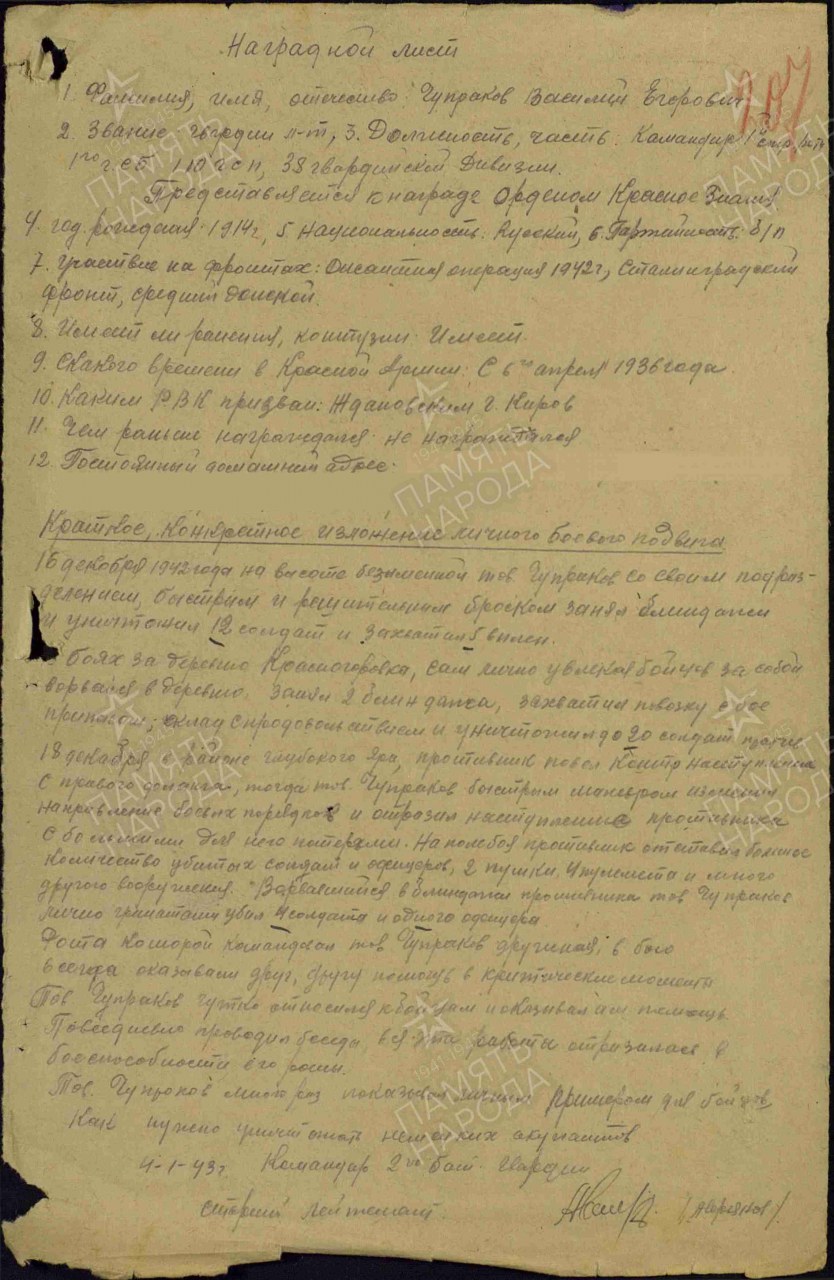 Наградной лист
207
1. Фамилия, имя, отчество: Чупраков Василий Егорович
2. Звание гвардии л-т, 3. Должность, часть: Командир 1й стр. роты
110 гсп, 38 гвардийской Дивизии.
Представляется к награде Орденом Красное Знамя
4. год рождения 1914г, 5 национальность. Русский, 6. Партийность б/п
7. Участвие на фронтах: операция 1942г, Сталинградский
фронт, средний донской.
8. Имеет ли ранения, контузии. Имеет.
9. Скакого времени в Красной Армии: С 6го апреля 1936 года.
10. Каким РВК призван: Ждановским г. Киров
11. Чем раньше награждался не награждался
12. Постоянный домашний адрес.
Краткое, конкретное изложение личного боевого подвига
16 декабря 1942 года на высоте безыменной тов Чупраков со своим подраз-
делением, быстрым и решительным броском занял блиндажи
и уничтожил 12 солдат и захватил 5 пленн.
В боях за деревню Красногоровка, сам лично увлекая бойцов за собой
ворвался в деревню. Занял 2 блиндажа, захватил повозку с бое
припасом; склад с продовольствием и уничтожил до 20 солдат
18 декабря в районе глубокого Яра, противник повел Контр наступление
с правого фланга, тогда тов Чупраков быстрым маневром изменил
направление боевых порядков и отразил наступление противника
с большими для него потерями. На поле боя противник отставил большое
количество убитых солдат и офицеров, 2 пушки, 4 пулемета и много
другого вооружения. Ворвавшийся в блиндажи противника тов Чупраков
лично гранатами убил 4 солдата и одного офицера
Рота которой командовал тов Чупраков дружная, в бою
всегда оказывали друг, другу помощь в критические моменты
Тов Чупраков чутко относился к бойцам и оказывал им помощь.
Повседневно проводил беседы, вся эта работа отразилась в
боеспособности его роты.
Тов. Чупраков много раз показывал личным примером для бойцов,
как нужно уничтожать немецких окупантов
4-1-43г. Командир 2го бат. Гвардии
старший лейтенант.
ПАМЯТЬ
НАРОДА